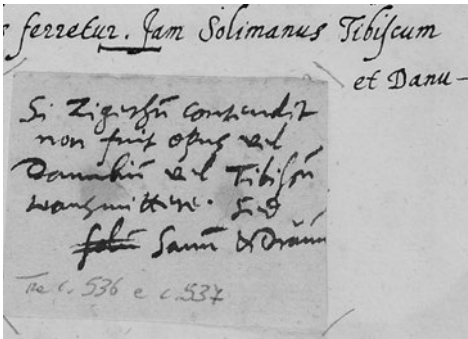 ferretur. Jam Solimanus Tibiscum
et Danu-
Si Zigethū contendit
non fuit opus vel
Danubiū vel Tibiscū
transmittere. Sed
solū Savum & Dravum
Tra c. 536 e c. 537